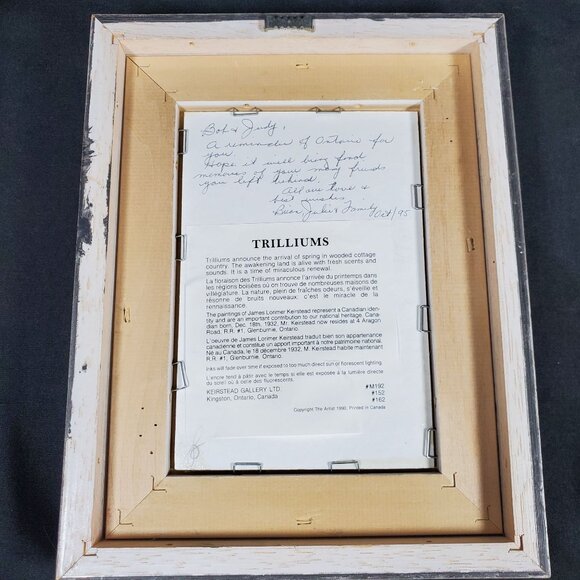 Bob & Judy,
A reminder of Ontario for
you.
Hope it will bring fond
memories of your many friends
you left behind.
All our love &
best wishes
Julie & Family
Oct/95
TRILLIUMS
Trilliums announce the arrival of spring in wooded cottage
country. The awakening land is alive with fresh scents and
sounds. It is a time of miraculous renewal.
La floraison des Trilliums annonce l'arrivée du printemps dans
les régions boisées où on trouve de nombreuses maisons de
villégiature. La nature, plein de fraîches odeurs, s'éveille et
résonne de bruits nouveaux: c'est le miracle de la
rennaissance.
The paintings of James Lorimer Keirstead represent a Canadian iden-
tity and are an important contribution to our national heritage. Cana-
dian born, Dec. 18th, 1932, Mr. Keirstead now resides at 4 Aragon
Road, R.R. #1, Glenburnie, Ontario.
L'oeuvre de James Lorimer Keirstead traduit bien son appartenance
canadienne et constitue un apport important à notre patrimoine national.
Né au Canada, le 18 décembre 1932, M. Keirstead habite maintenant
R.R. #1, Glenburnie, Ontario.
Inks will fade over time if exposed to too much direct sun or florescent lighting.
L'encre tend à pâtir avec le temps si elle est exposée à la lumière directe
du soleil où à celle des fluorescents.
KEIRSTEAD GALLERY LTD.
Kingston, Ontario, Canada
#M192
#152
#162
Copyright The Artist 1990, Printed in Canada